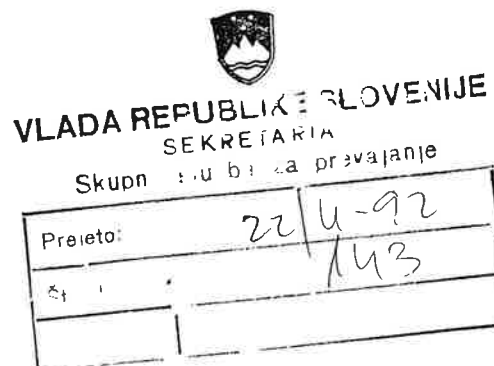 VLADA REPUBLIKE SLOVENIJE
SEKRETARIAT
za prevajanje
Prejeto: 22/4-92
143